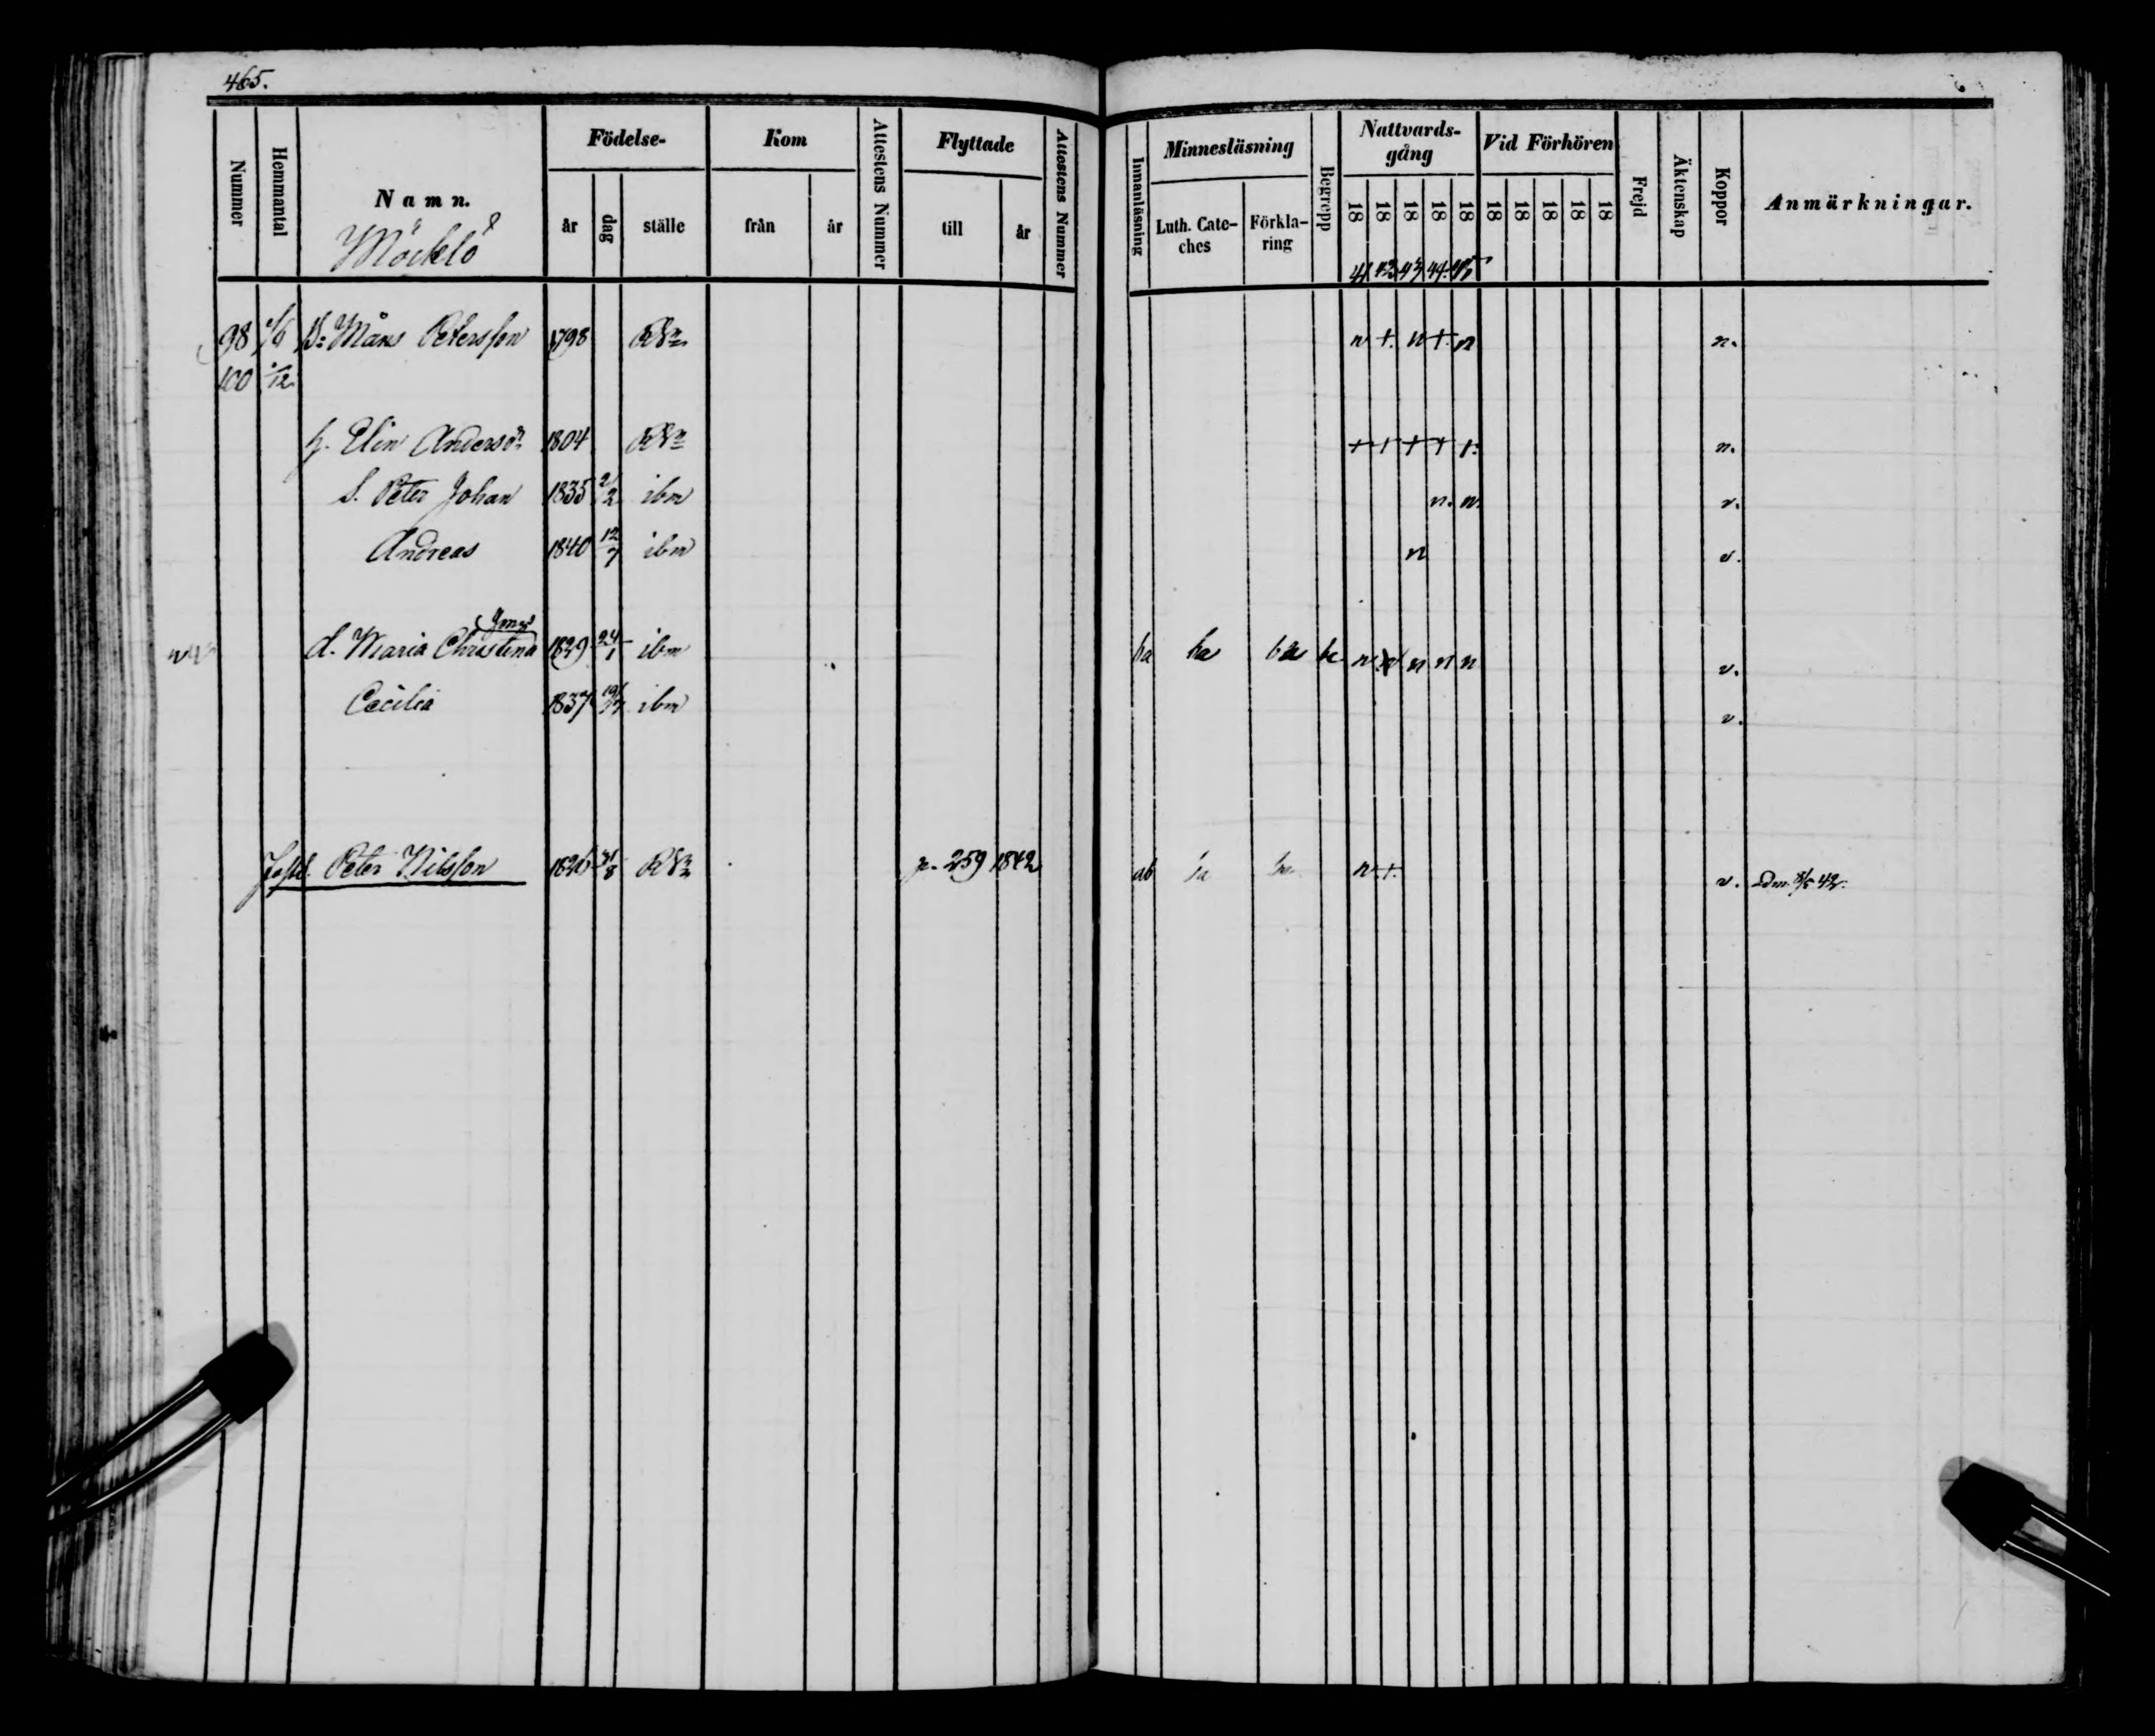 465.
Nummer Hemmantal Namn. Födelse- Kom Attestens Nummer Flyttade Attestens Nummer Innanläsning Minnesläsning Begrepp Nattvards-gång Vid Förhören Frejd Äktenskap Koppor Anmärkningar.
år dag ställe från år till år Luth. Cate-ches Förkla-ring 18 18 18 18 18 18 18 18 18 18
Möcklö 41 42 43 44 45
98 1/6 Måns Petersson 1798 n + n + n n.
100 1/12
h. Elin Andersdr 1804 + + + + n.
S. Peter Johan 1835 2/2 ibm n. n. v.
Andreas 1840 12/7 ibm n v.
d. Maria Christina 1829 24/1 ibm ba ba ba n n n n v.
Cecilia 1837 ibm v.
Peter Nilsson 1826 31/8 p. 259 1842 ab n + v. 42.